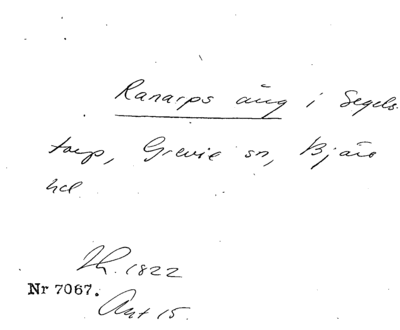 Ranarps äng i Segels-
torp, Grevie sn, Bjäre
hd
Lh. 1822
Nr 7067.
Akt 15.